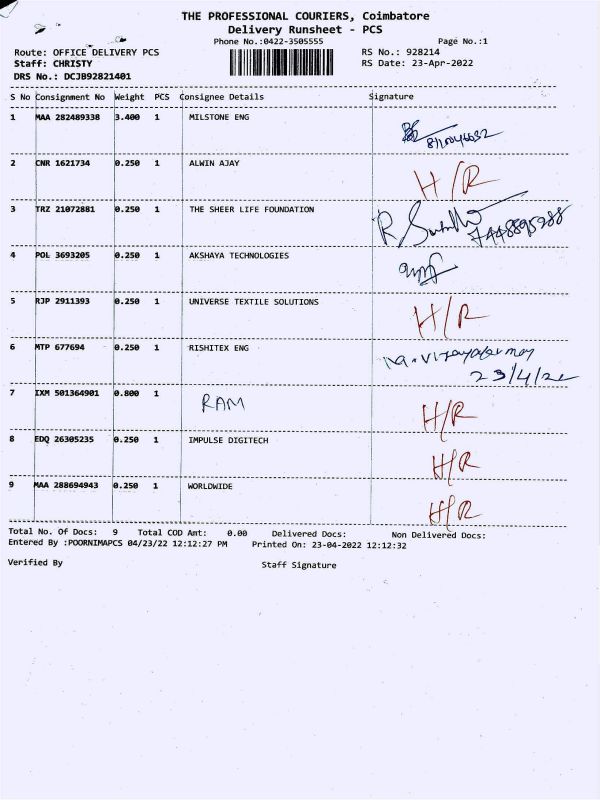 THE PROFESSIONAL COURIERS, Coimbatore
Delivery Runsheet - PCS
Phone No.:0422-3505555 Page No.:1
Route: OFFICE DELIVERY PCS RS No.: 928214
Staff: CHRISTY RS Date: 23-Apr-2022
DRS No.: DCJB92821401
S No Consignment No Weight PCS Consignee Details Signature
1 MAA 282489338 3.400 1 MILSTONE ENG
2 CNR 1621734 0.250 1 ALWIN AJAY H/R
3 TRZ 21072881 0.250 1 THE SHEER LIFE FOUNDATION
4 POL 3693205 0.250 1 AKSHAYA TECHNOLOGIES
5 RJP 2911393 0.250 1 UNIVERSE TEXTILE SOLUTIONS H/R
6 MTP 677694 0.250 1 RISHITEX ENG
23/4/22
7 IXM 501364901 0.800 1 RAM H/R
8 EDQ 26305235 0.250 1 IMPULSE DIGITECH H/R
9 MAA 288694943 0.250 1 WORLDWIDE H/R
Total No. Of Docs: 9 Total COD Amt: 0.00 Delivered Docs: Non Delivered Docs:
Entered By :POORNIMAPCS 04/23/22 12:12:27 PM Printed On: 23-04-2022 12:12:32
Verified By Staff Signature